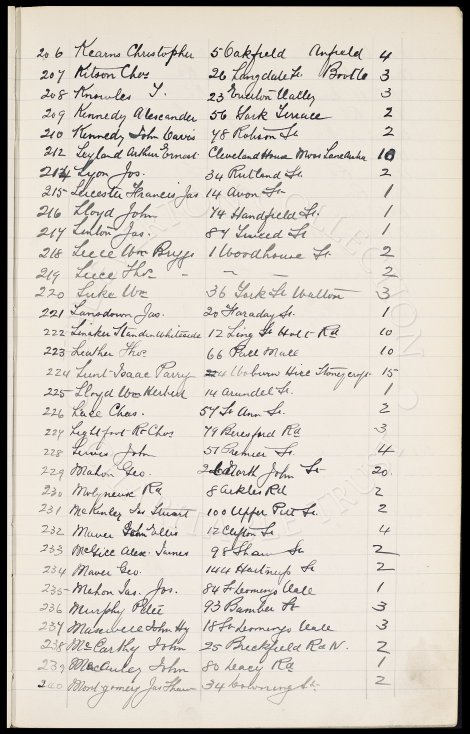 206 Kearns Christopher 5 Oakfield Anfield 4
207 Kitson Thos 26 Langdale St Bootle 3
208 Knowles T. 23 Everton Valley 3
209 Kennedy Alexander 56 York Terrace 2
210 Kennedy John Davis 78 Robson St 2
212 Leyland Arthur Ernest Cleveland House Moss Lane 10
214 Lyon Jos. 34 Rutland St 2
215 Leicester Francis Jas 14 Avon St 1
216 Lloyd John 74 Handfield St. 1
217 Linton Jas. 87 St. 1
218 Leece Wm Briggs 1 Woodhouse St 2
219 Leece Thos. - - - 2
220 Luke Wm 36 York St Walton 3
221 Lansdown Jas. 20 Faraday St. 1
222 Linaker Standen Whiteside 12 Rd 10
223 Leather Thos. 66 Pall Mall 10
224 Lunt Isaac Parry Woburn Hill Stoneycroft 15
225 Lloyd Wm Herbert 14 Arundel St. 1
226 Lace Chas. 57 St Ann St. 2
227 Lightfoot Rt Chas 79 Beresford Rd 3
228 John 51 Premier St. 4
229 Mahon Geo. North John St 20
230 Molyneux Rd 8 Arkles Rd 2
231 McKinley Jas Stuart 100 Upper Pitt St. 2
232 Maver John Ellis 12 Clifton St. 4
233 Alex. James 98 Shaw St 2
234 Maver Geo. 144 St 2
235 Mahon Jas. Jos. 84 St Domingo Vale 1
236 Murphy Peter 93 Bamber St 3
237 John Hy 18 St Domingo Vale 3
238 McCarthy John 25 Breckfield Rd N. 2
239 McAuley John 80 Lacey Rd 1
240 Montgomery Jas Shaw 34 St. 2